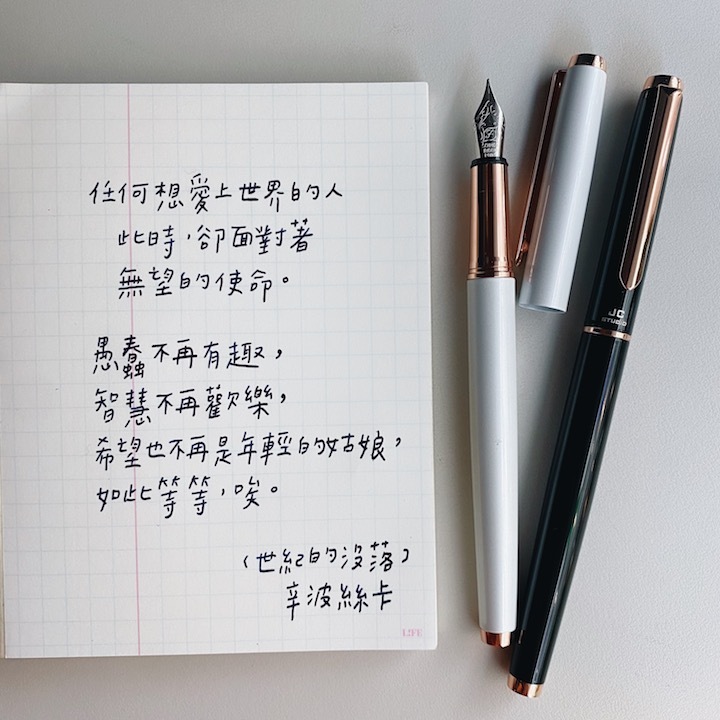 任何想愛上世界的人
此時，卻面對著
無望的使命。
愚蠢不再有趣，
智慧不再歡樂，
希望也不再是年輕的姑娘，
如此等等，唉。
〈世紀的沒落〉
辛波絲卡
L!FE
JC
STUDIO